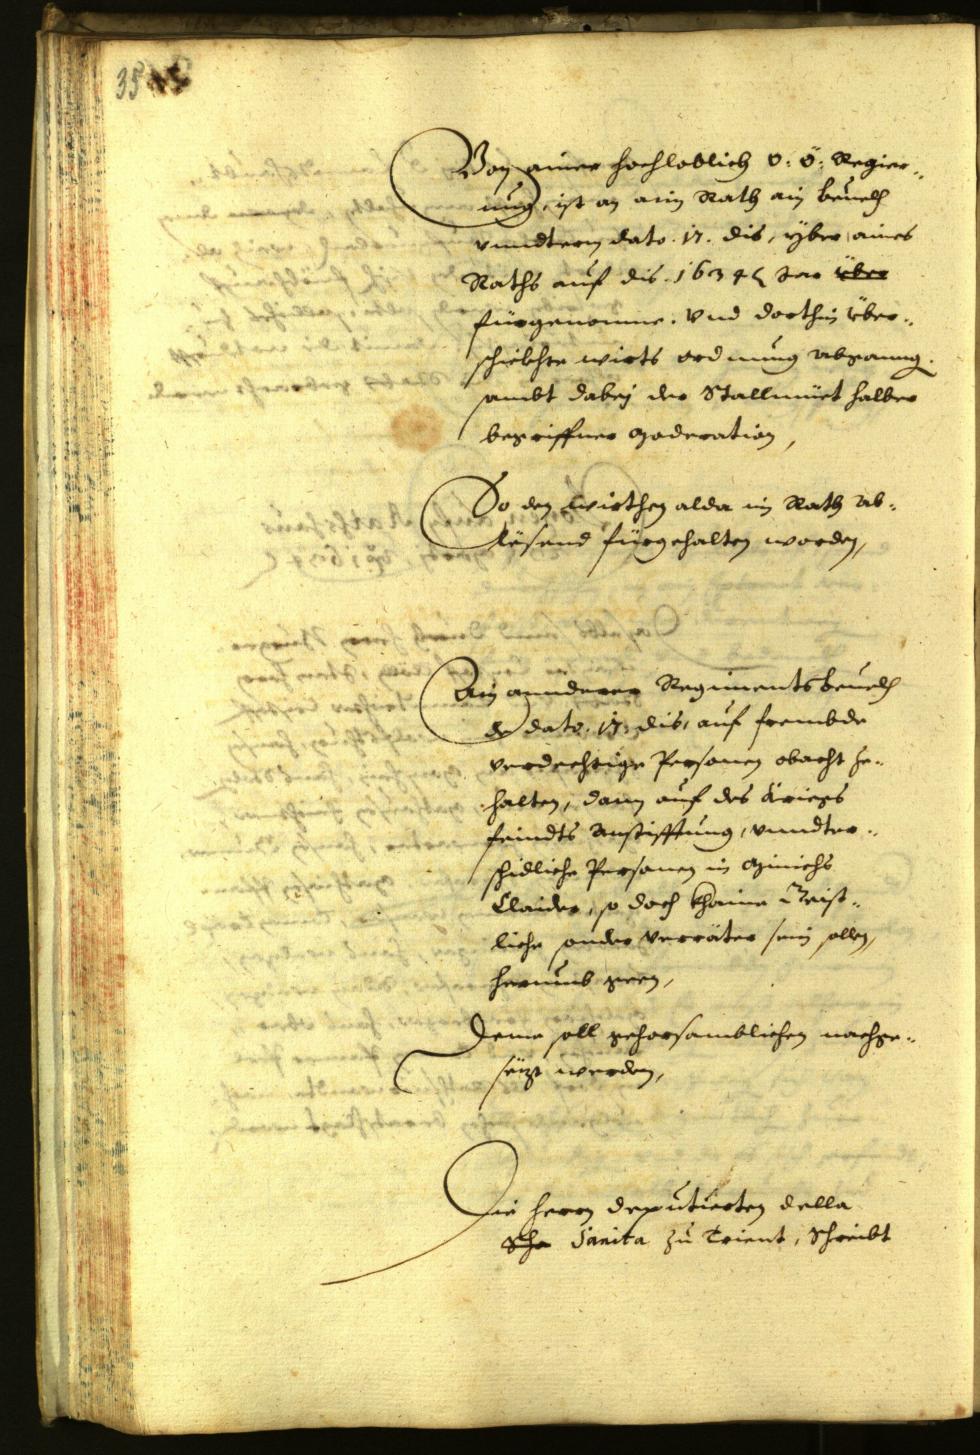 35
Von ainer hochloblich O: Ö: Regier„
ung, ist an ain Rath ain beuelch
vnndterm dato. 17. dis, yber aines
Raths auf dis. 1634 Jar über
fürgenomne. Vnd dorthin über„
schickhte wirts ordnung
sambt dabej der Stallmiet halber
begriffner moderation,
So den wirthen alda im Rath ab„
lësend fürgehalten worden,
Ain annderer Regiments beuelch
de dato. 17. dis, auf frembde
verdechtige Personen obacht ze„
halten, dann auf des kriegs
feindts Anstifftung, vnndter„
schidliche Personen in Minichs
Claider, so doch khaine Geist„
liche sonder verräter sein sollen,
herumb geen,
Deme soll gehorsamblichen nachge„
sëzt werden,
Die herrn deputierten della
Sanita zu Trient, Schreibt